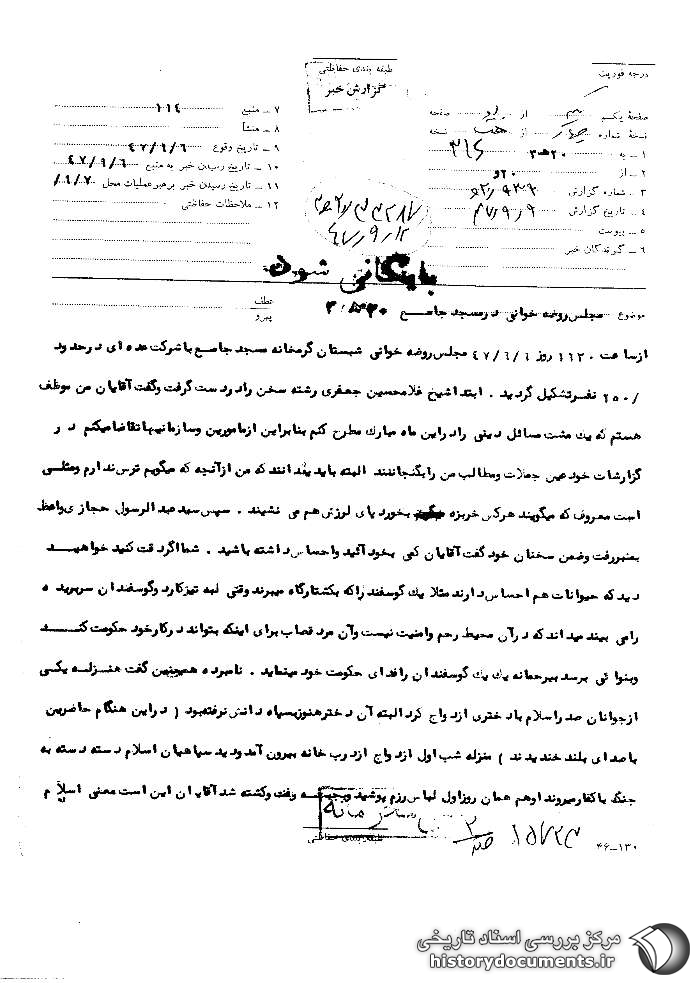 درجه فوریت
طبقه بندی حفاظتی
گزارش خبر
صفحهٔ یکم از صفحه
نسخهٔ شماره چهار از نسخه
۱ – به ۲۰ هـ ۳ ۳۱۶
۲ – از ۲۰ و
۳ – شماره گزارش
۴ – تاریخ گزارش ۴۷/۹/۹
۵ – پیوست
۶ – گیرندگان خبر
۷ – منبع ۱۱۴
۸ – منشأ
۹ – تاریخ وقوع ۴۷/۹/۶
۱۰ – تاریخ رسیدن خبر به منبع ۴۷/۹/۶
۱۱ – تاریخ رسیدن خبر برهبر عملیات محل ۹/۷/
۱۲ – ملاحظات حفاظتی
۴۷/۹/۱۲
بایگانی شود
عطف
پیرو
موضوع مجلس روضه خوانی در مسجد جامع
از ساعت ۱۱۳۰ روز ۴۷/۹/۶ مجلس روضه خوانی شبستان گرمخانه مسجد جامع با شرکت عده ای در حدود
/۲۵۰ نفر تشکیل گردید . ابتدا شیخ غلامحسین جعفری رشته سخن را در دست گرفت و گفت آقایان من موظف
هستم که یک مشت مسائل دینی را در این ماه مبارک مطرح کنم بنابراین از مامورین و سازمانیها تقاضا میکنم در
گزارشات خود عین جملات و مطالب من را بگنجانند البته باید بدانند که من از آنچه که میگویم ترس ندارم و مثلی
است معروف که میگویند هر کس خربزه بخورد پای لرزش هم می نشیند . سپس سید عبدالرسول حجازی واعظ
بمنبر رفت و ضمن سخنان خود گفت آقایان کمی بخود آئید و احساس داشته باشید . شما اگر دقت کنید خواهید
دید که حیوانات هم احساس دارند مثلا یک گوسفند را که بکشتارگاه میبرند وقتی لبه تیز کارد و گوسفندان سر بریده
را می بیند میداند که در آن محیط رحم و امنیت نیست و آن مرد قصاب برای اینکه بتواند در کار خود حکومت کند
و بنوائی برسد بیرحمانه یک یک گوسفندان را فدای حکومت خود مینماید . نامبرده همچنین گفت هنزله یکی
از جوانان صدر اسلام با دختری ازدواج کرد البته آن دختر هنوز بسپاه دانش نرفته بود ( در این هنگام حاضرین
با صدای بلند خندیدند ) هنزله شب اول ازدواج از درب خانه بیرون آمد و دید سپاهیان اسلام دسته دسته به
جنگ با کفار میروند او هم همان روز اول لباس رزم پوشید و بجبهه رفت و کشته شد آقایان این است معنی اسلام
طبقه بندی حفاظتی
۱۳۰–۴۶
مرکز بررسی اسناد تاریخی
historydocuments.ir